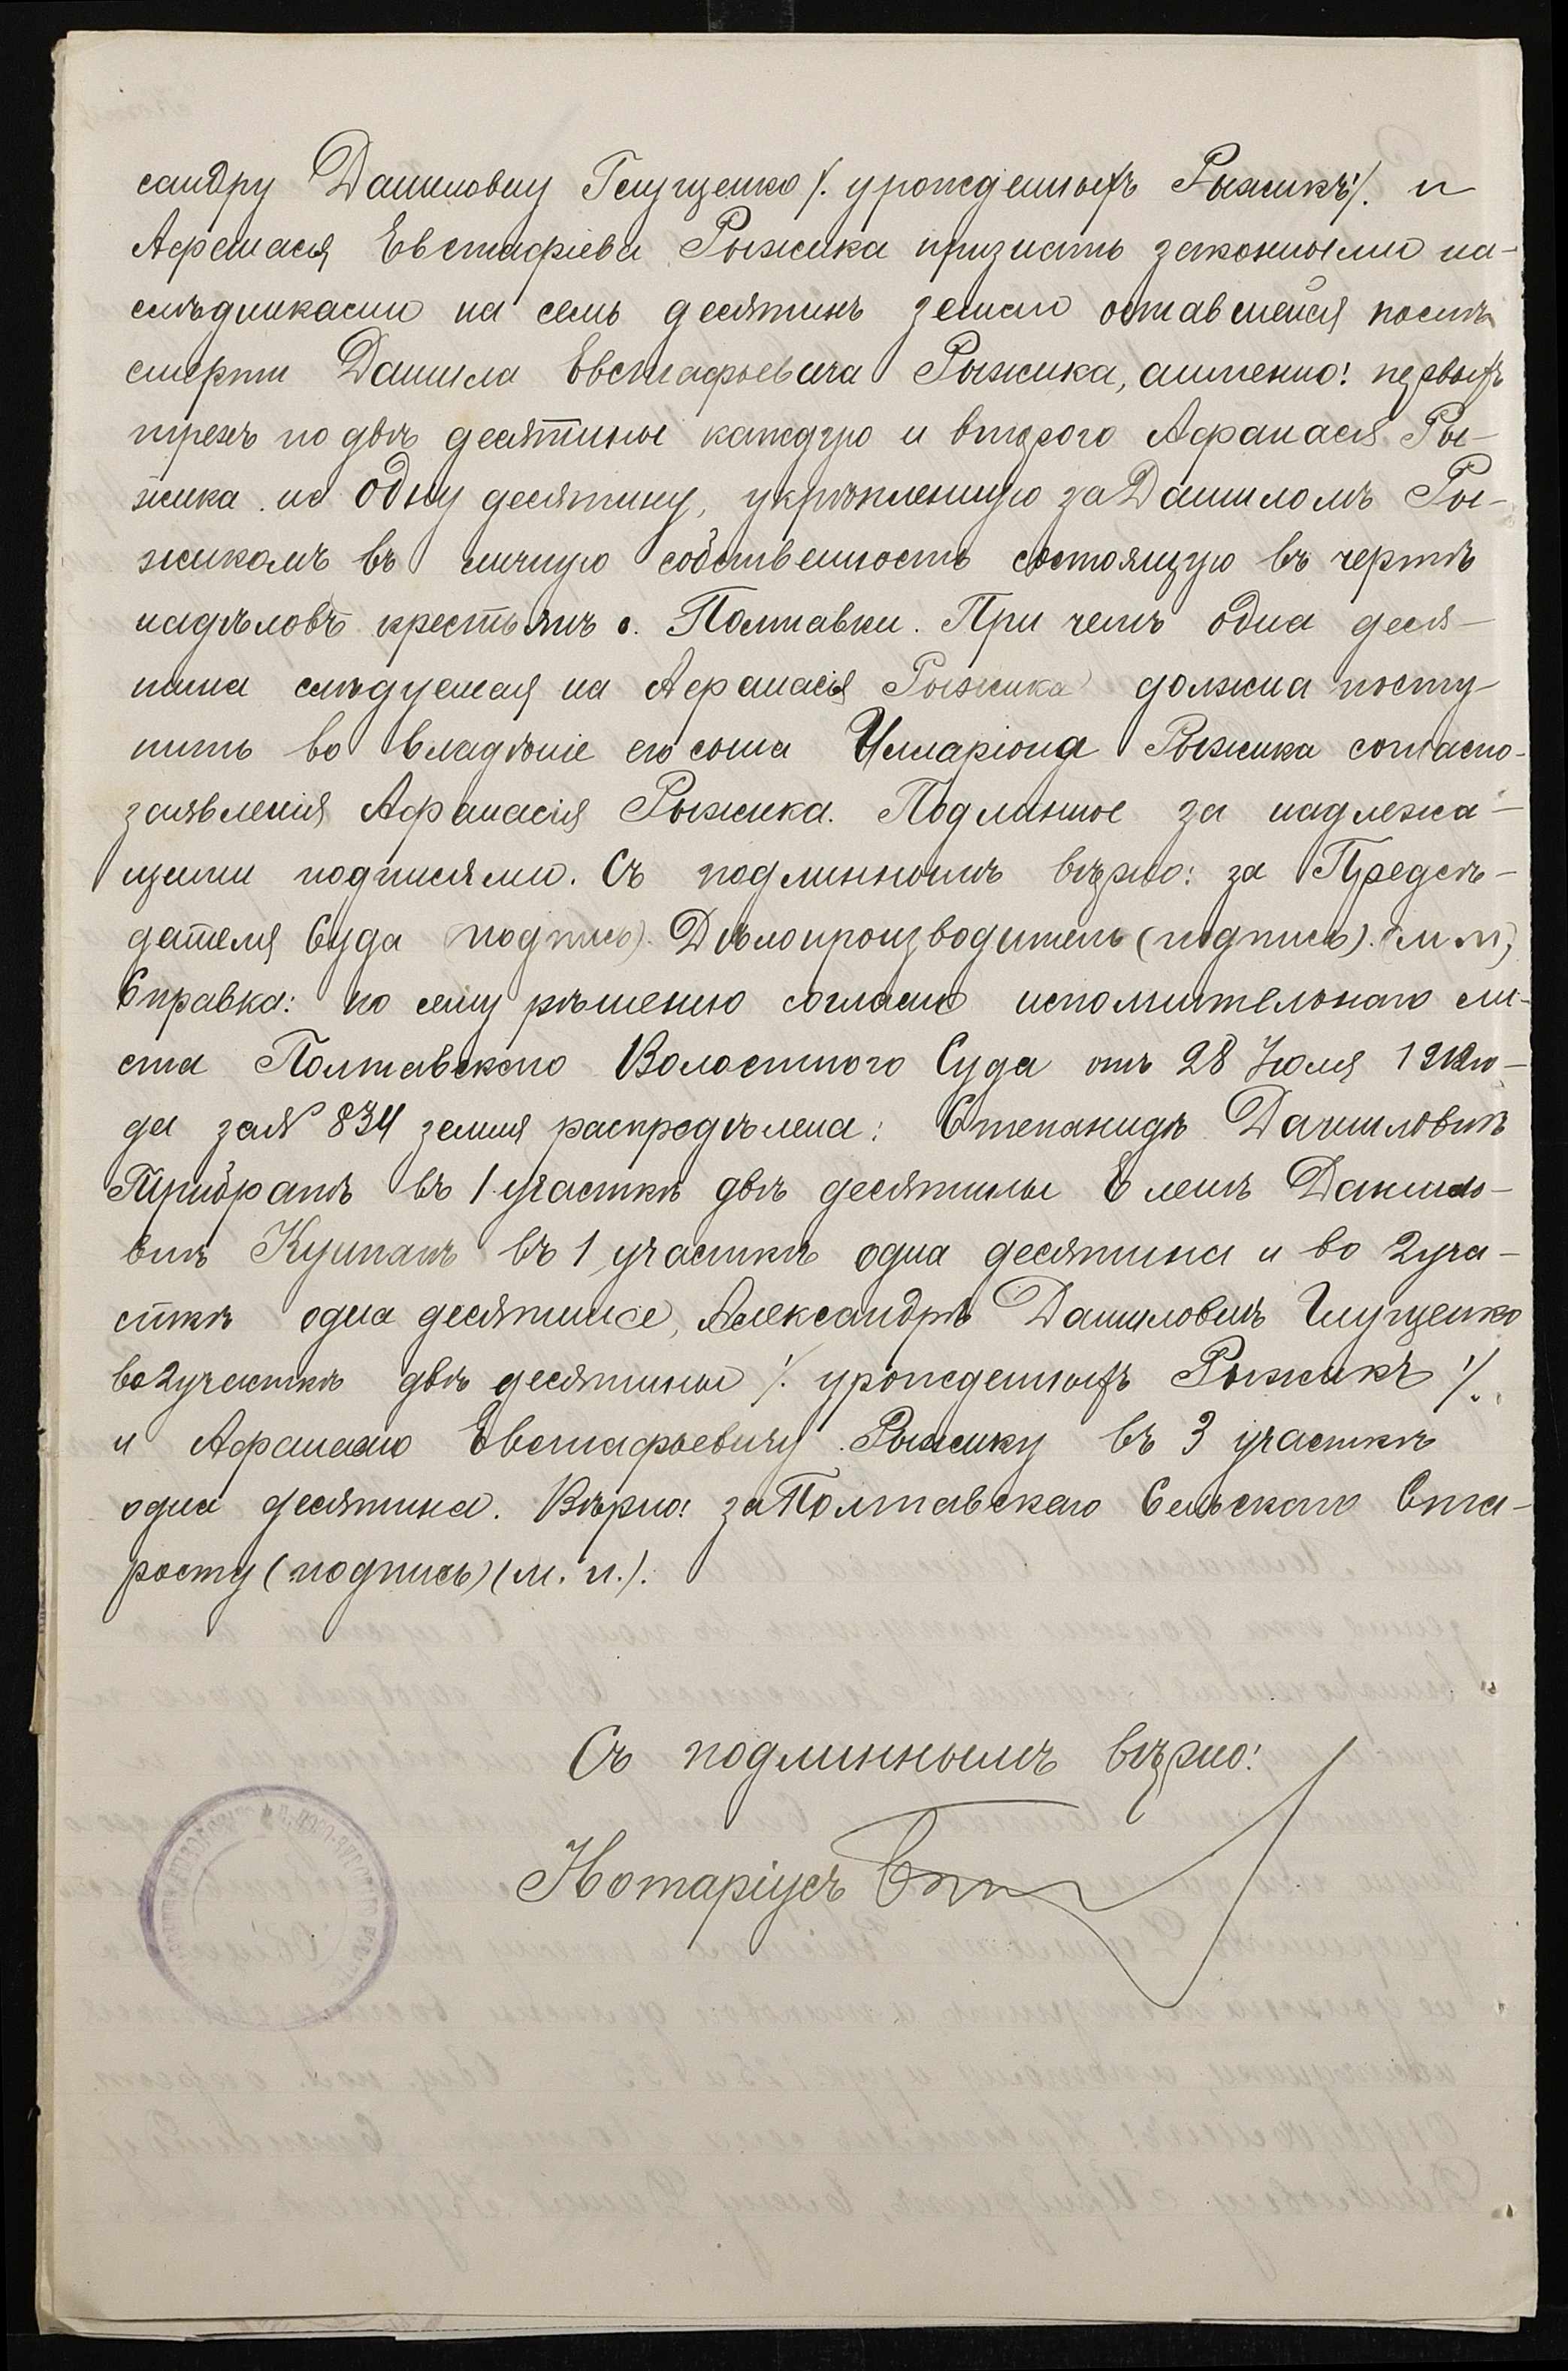 сандру Даниловну Глущенко /. урожденныхъ Рыжикъ ./. и
Афанасія Евстафіева Рыжика признать законными на-
слѣдниками на семь десятинъ земли оставшейся послѣ
смерти Данила Евстафьевича Рыжика, аименно: первыхъ
трехъ по двѣ десятины каждую и второго Афанасія Ры-
жика на одну десятину, укрѣпленную за Даниломъ Ры-
жикомъ въ личную собственность состоящую въ чертѣ
надѣловъ крестьянъ с. Полтавки. При чемъ одна деся-
тина слѣдуемая на Афанасія Рыжика должна посту-
пить во владѣніе его сына Илларіона Рыжика согласно-
заявленія Афанасія Рыжика. Подлинное за надлежа-
щими подписями. Съ подлиннымъ вѣрно: за Предсѣ-
дателя Суда (подпись). Дѣлопроизводитель (подпись). (м.п.)
Справка: по сему рѣшенію согласно исполнительнаго ли-
ста Полтавскаго Волостного Суда отъ 28 Іюля 1912 го-
да за № 834 земля распредѣлена: Степанидѣ Даниловнѣ
въ 1 участкѣ двѣ десятины Еленѣ Данило-
внѣ въ 1 участкѣ одна десятина и во 2 уча-
сткѣ одна десятина, Александрѣ Даниловнѣ Глущенко
во 2 участкѣ двѣ десятины /. урожденныхъ Рыжикъ ./.
и Афанасію Евстафьевичу Рыжику въ 3 участкѣ
одна десятина. Вѣрно: за Полтавскаго Сельскаго Ста-
росту (подпись) (м. п.).
Съ подлиннымъ вѣрно:
Нотаріусъ